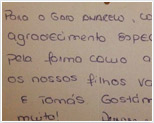 Para o Gato Amarelo, co
agradecimento espec
pela forma como a
os nossos filhos Va
E Tomás Gostam
muito!